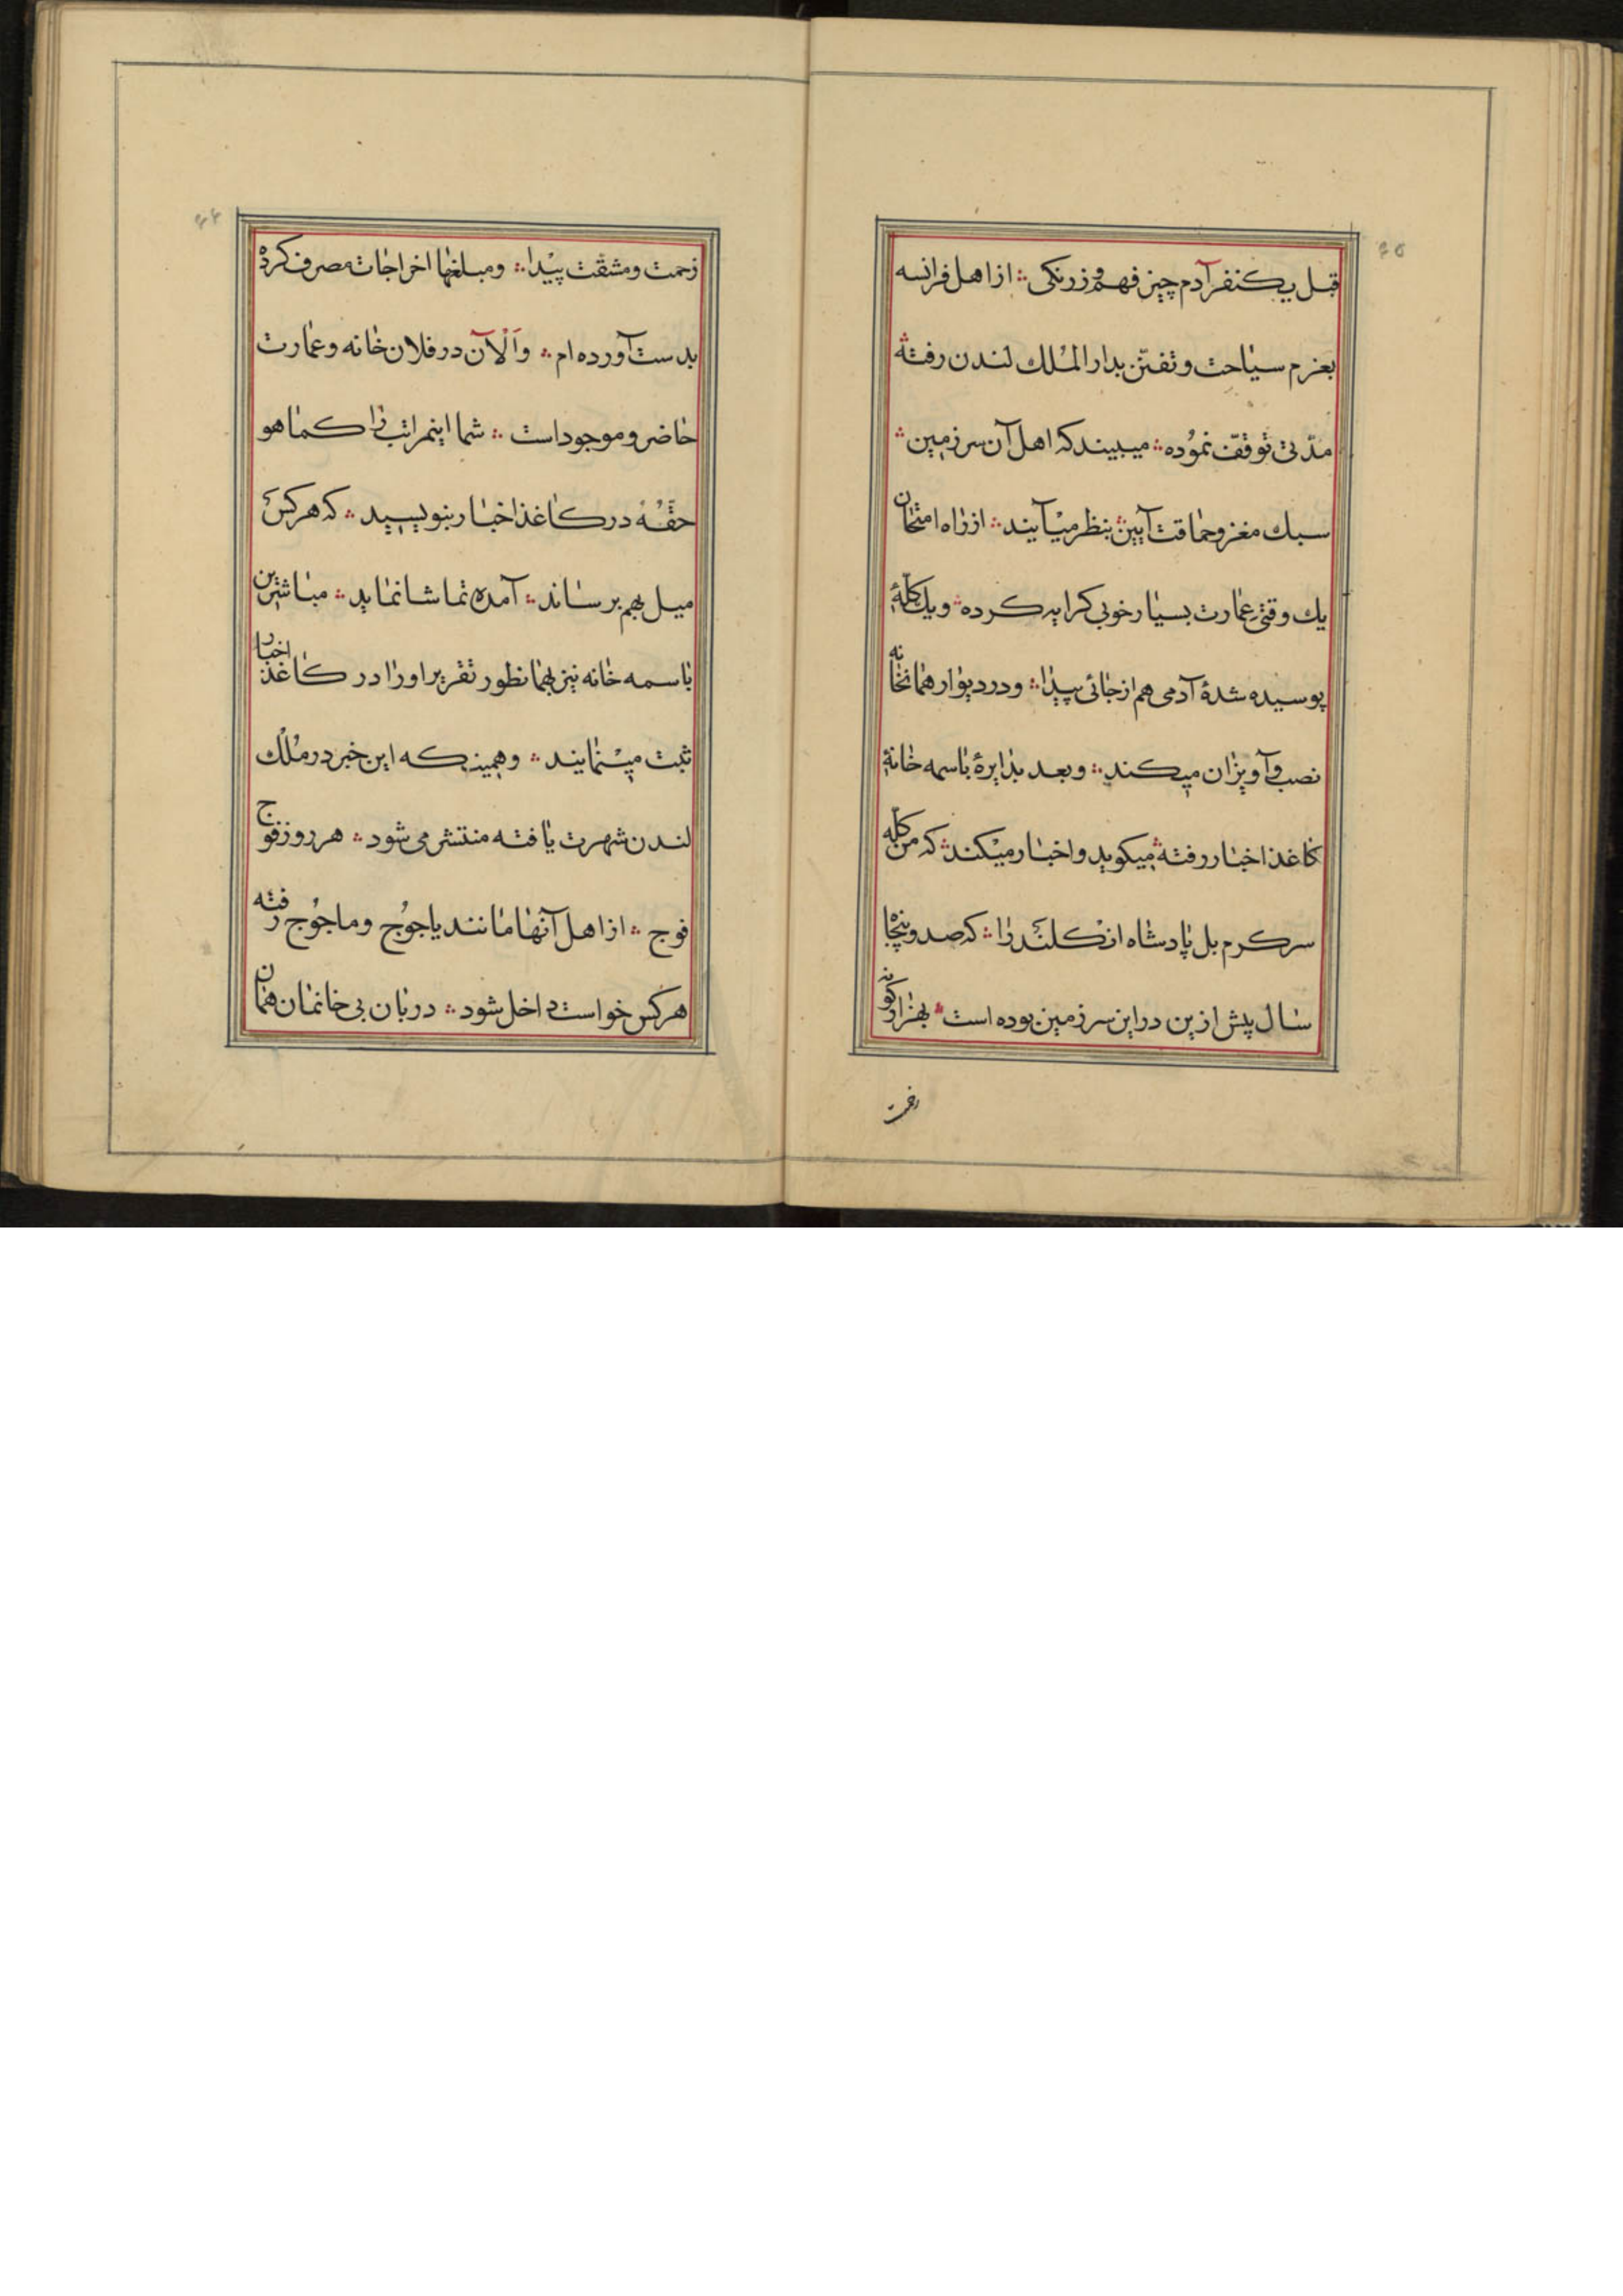 ٤٥
قبل یکنفر آدم چیز فهم و زرنکی ؞ از اهل فرانسه
بعزم سیاحت و تفنّن بدار المُلك لندن رفته ؞
مدّتی توقفّ نمُوده ؞ میبیند که اهل آن سرزمین ؞
سبك مغز و حماقت آیین ؞ بنظر میآیند ؞ از راه امتحان
یك وقتی عمارت بسیار خوبی کرایه کرده ؞ و یك کلّهٔ
پوسیده شدهٔ آدمی هم از جائی پیدا ؞ و در دیوار همانخانه
نصب و آویزان میکند ؞ و بعد بدایرهٔ باسمه خانهٔ
کاغذ اخبار رفته ؞ میکوید و اخبار میکند ؞ که من کلّه
سر کرم بل پادشاه انکلند را ؞ که صد و پنجاه
سال پیش ازین در این سرزمین بوده است ؞ بهزار کونه
زحمت
٤٦
زحمت و مشقت پیدا ؞ و مبلغها اخراجات مصرف کرده
بدست آورده ام ؞ و اَلْآن در فلان خانه و عمارت
حاضر و موجود است ؞ شما اینمراتب را کماهو
حقّهُ در کاغذ اخبار بنویسید ؞ که هر کس
میل بهم برساند ؞ آمده تماشا نماید ؞ مباشرین
باسمه خانه نیز بهمانطور تقریر او را در کاغذ اخبار
ثبت مینمایند ؞ و همینکه این خبر در مُلْك
لندن شهرت یافته منتشر می شود ؞ هر روز فوج
فوج ؞ از اهل آنها مانند یاجوُج و ماجوُج رفته
هر کس خواست داخل شود ؞ دربان بی خانمان همان